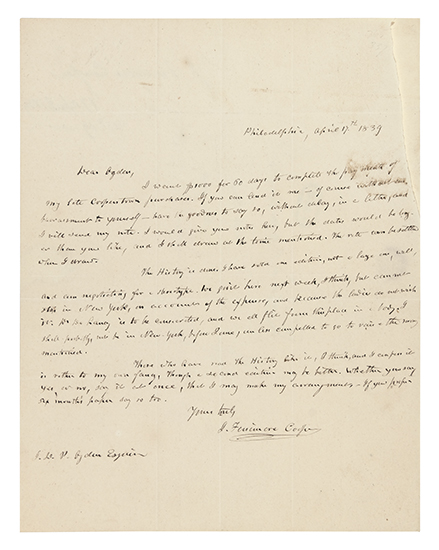 Philadelphia, April 17th 1839
Dear Ogden,
I want $1000 for 60 days to complete the
my late Cooperstown purchases. If you can lend it me — of course without
to yourself — have the goodness to say so, without delay, in a letter, and
I will send my note. I would give you notes here, but the dates would be long-
er than you like, and I shall draw at the time mentioned. The note can be
when I want.
The History is done. I have sold one edition, not a large one,
and am negotiating for a stereotype. We quit here next week, I think, but cannot
stop in New York, on account of the expense, and because the ladies do not wish
is to be consecrated, and we all flee from this place in a body. I
shall not be in New York before June, unless compelled to go to raise the money
mentioned.
Those who have seen the History like it, I think, and it
is rather to my own fancy, though a second edition may be better. Whether you say
yes or no, say it at once, that I may make my arrangements — If you prefer
six months paper say so too.
Yours truly
J. Fenimore Cooper
J. De P. Ogden Esquire